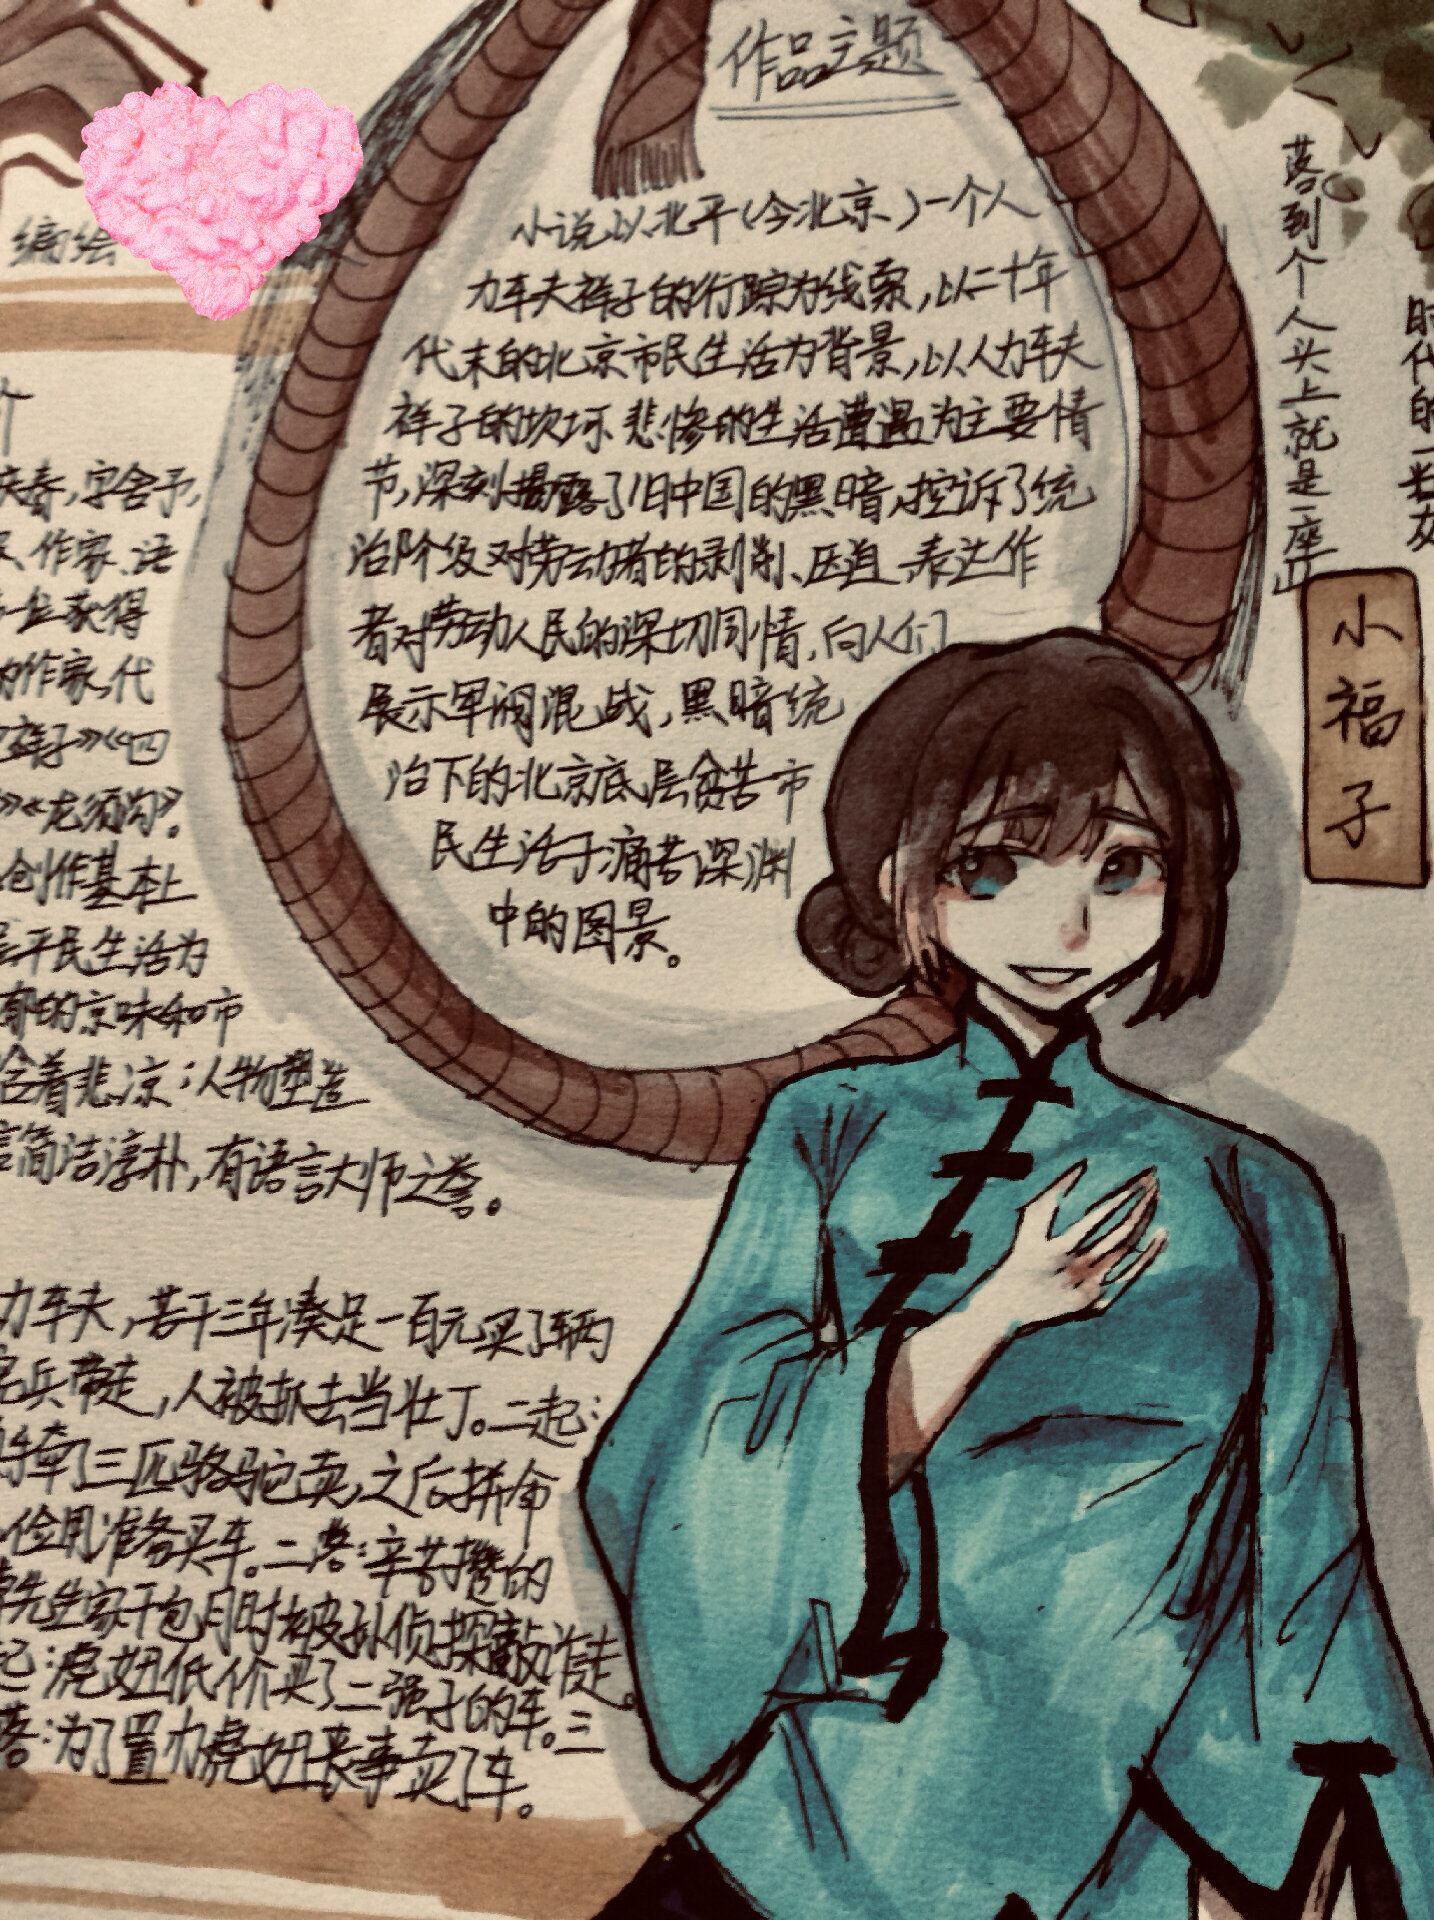 作品主题
小说以北平(今北京)一个人
力车夫祥子的行踪为线索,以二十年
代末的北京市民生活为背景,以人力车夫
祥子的坎坷、悲惨的生活遭遇为主要情
节,深刻揭露了旧中国的黑暗,控诉了统
治阶级对劳动者的剥削、压迫,表达作
者对劳动人民的深切同情,向人们
展示军阀混战,黑暗统
治下的北京底层贫苦市
民生活于痛苦深渊
中的图景。
编绘
介
庆春,字舍予,
作家、语
一位获得
的作家,代
祥子》《四
》《龙须沟》。
创作基本上
平民生活为
有的京味和市
含着悲凉;人物塑造
言简洁淳朴,有语言大师之誉。
力车夫,苦干三年凑足一百元买了辆
兵带走,人被抓去当壮丁。二起:
牵了三匹骆驼卖,之后拼命
俭用准备买车。二落:辛苦攒的
先生家干包月时被孙侦探敲诈走。
起:虎妞低价买了二强子的车。三
落:为了置办虎妞丧事卖了车。
时代的一
落到个人头上就是一座山
小福子